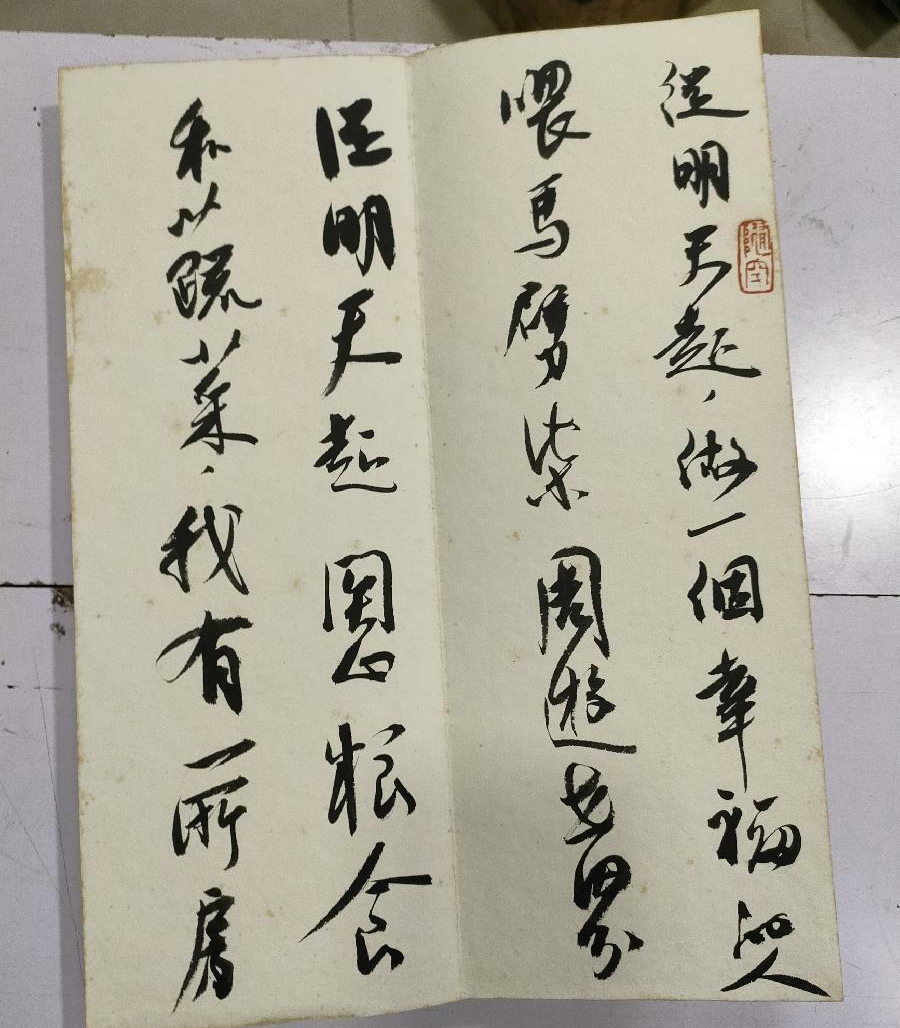 從明天起，做一個幸福的人
喂馬劈柴周遊世界
從明天起關心粮食
和蔬菜，我有一所房
隨空